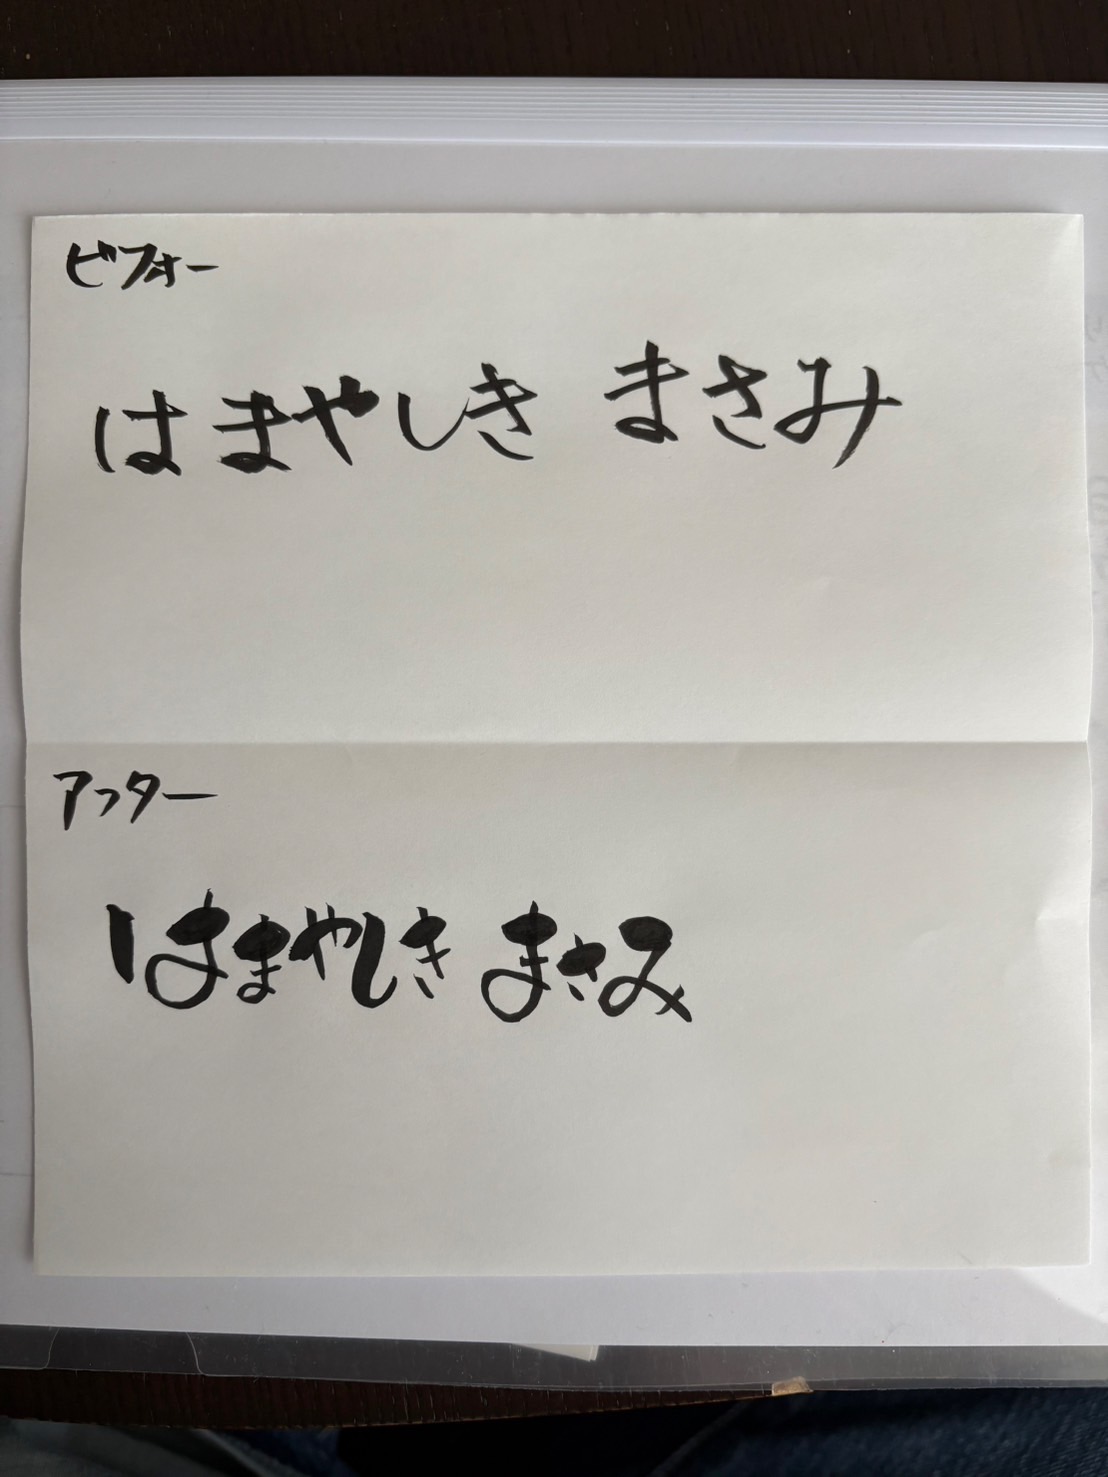 ビフォー
はまやしき まさみ
アフター
はまやしき まさみ